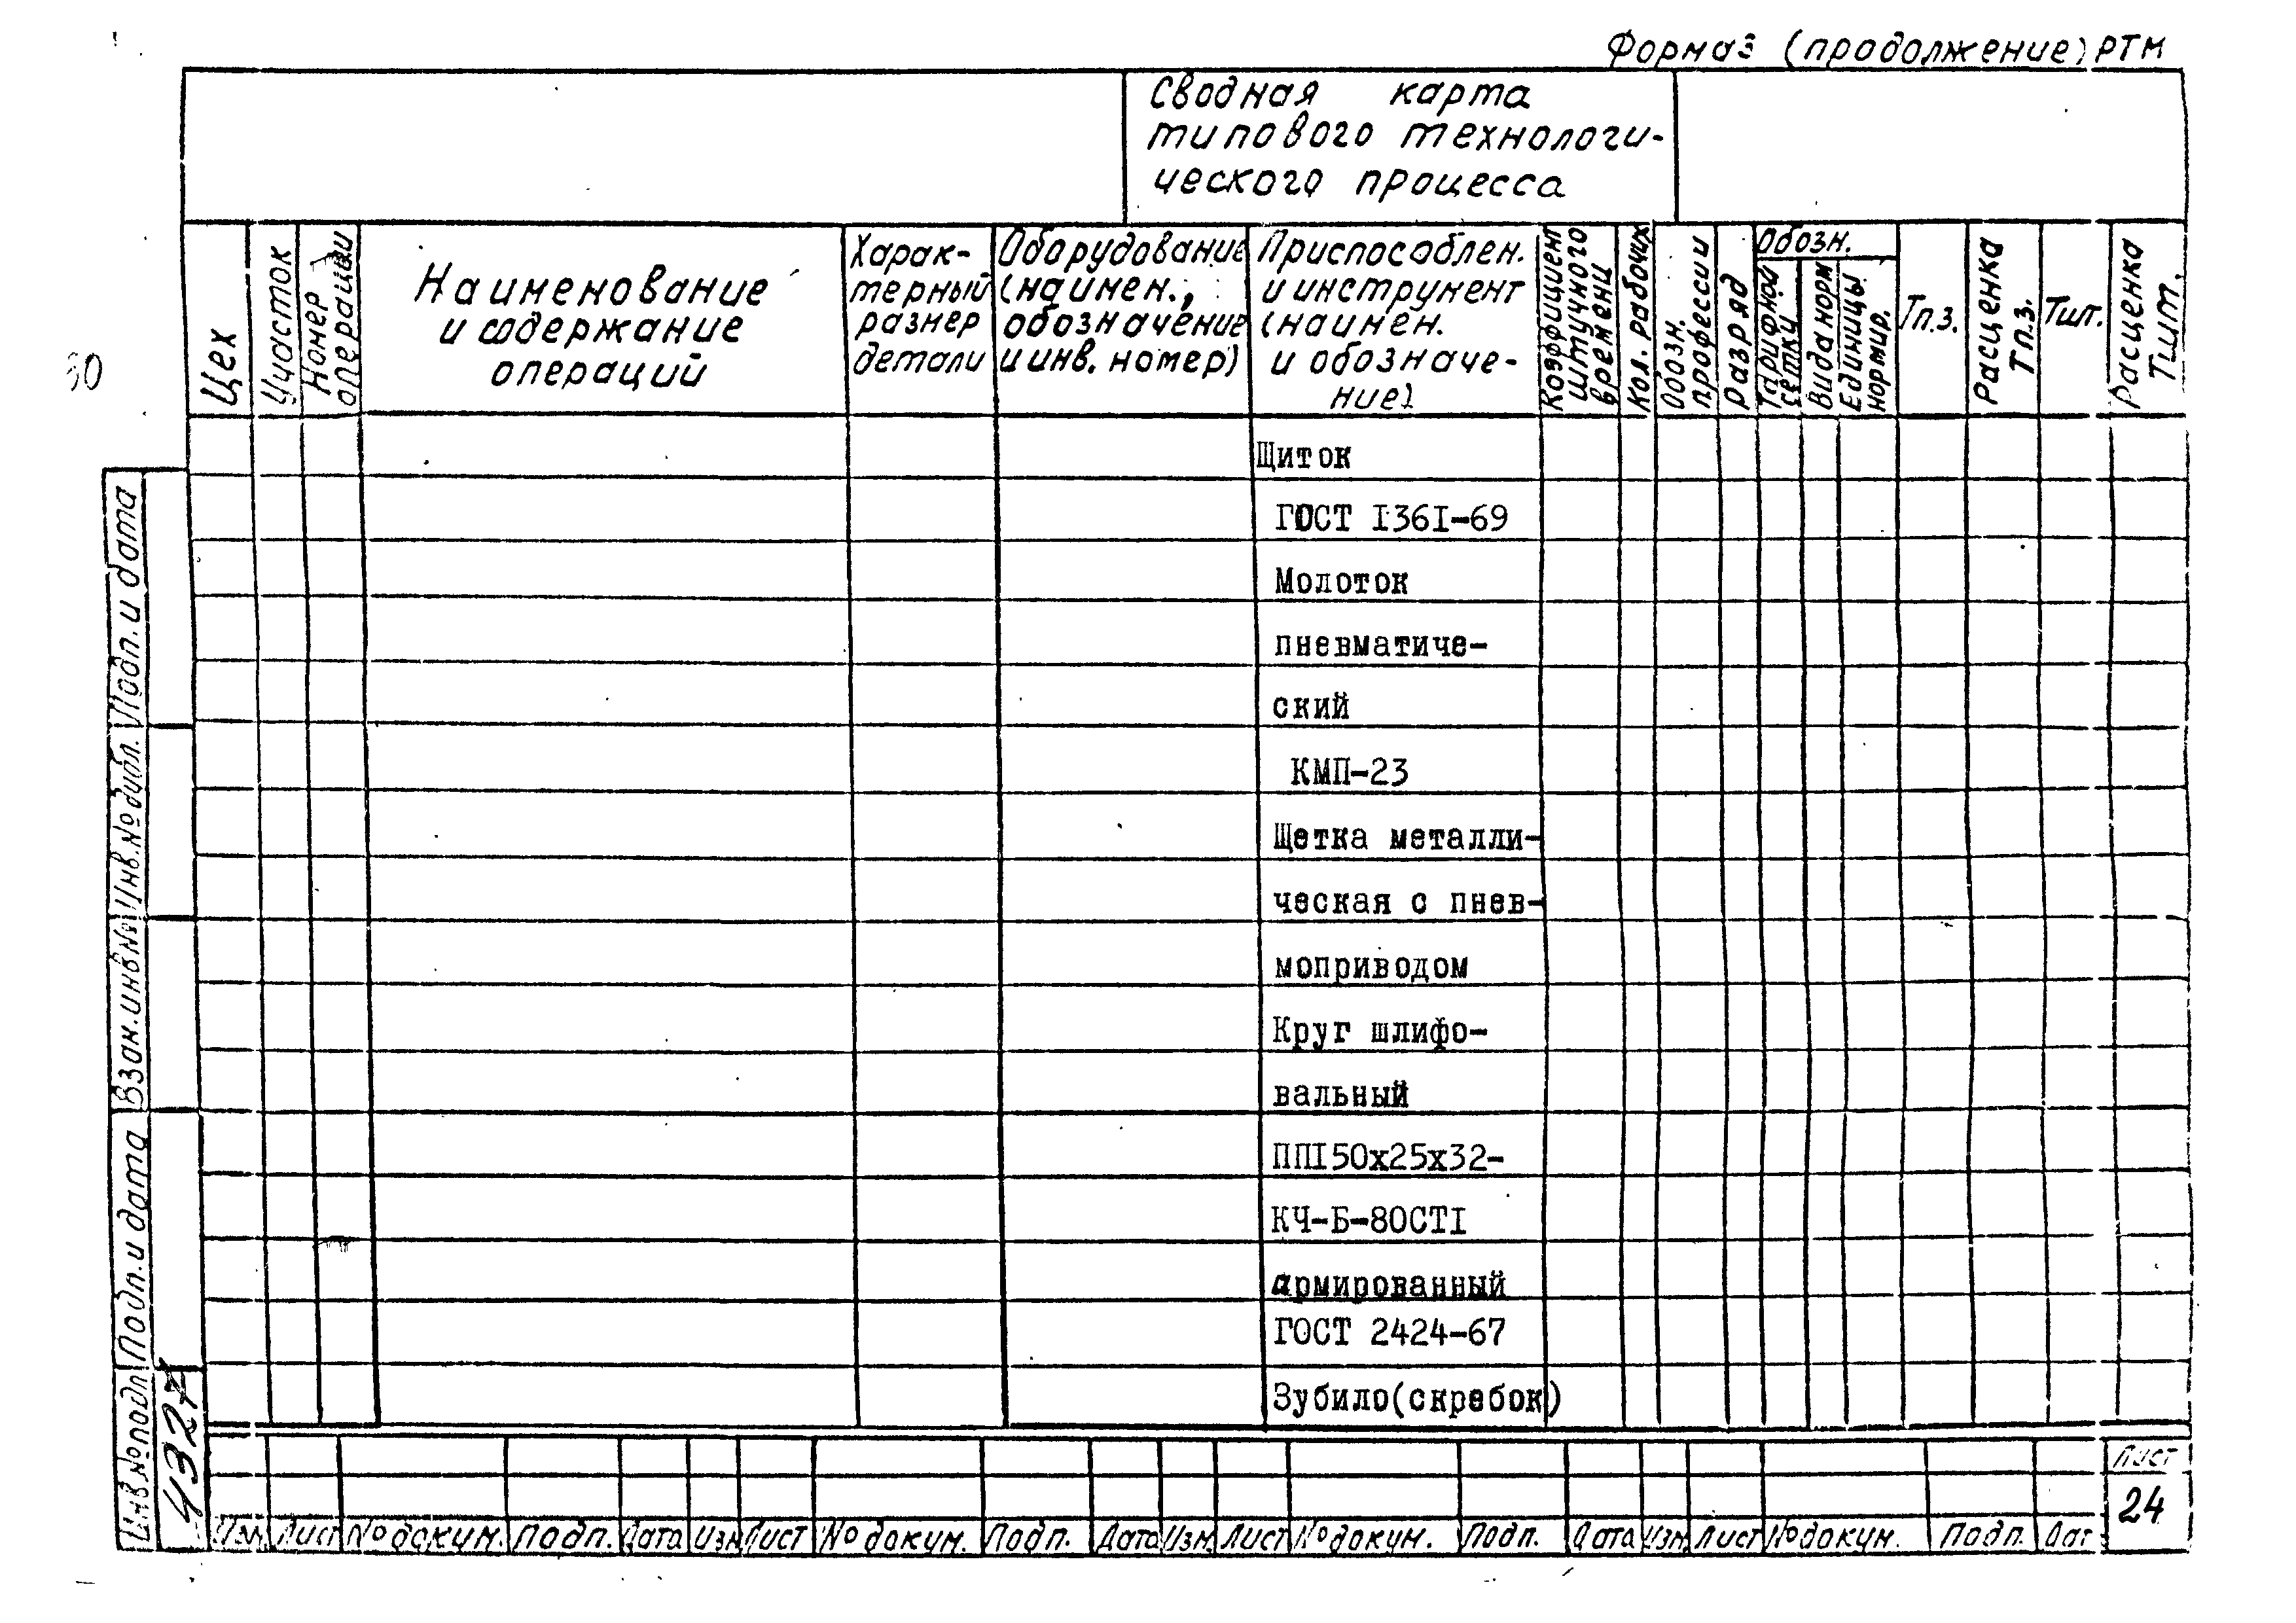 Форма3 (продолжение) РТМ
Сводная карта
типового технологи-
ческого процесса
Цех
Участок
Номер
операции
Наименование
и содержание
операций
Харак-
терный
размер
детали
Оборудование
(наимен.,
обозначение
и инв. номер)
Приспособлен.
и инструмент
(наимен.
и обозначе-
ние)
Коэффициент
штучного
времени
Кол. рабочих
Обозн.
профессии
Разряд
Обозн.
Тарифной
сетки
Вида норм
Единицы
нормир.
Тп.з.
Расценка
Тп.з.
Тшт.
Расценка
Тшт.
60
Щиток
ГОСТ I36I-69
Молоток
пневматиче-
ский
КМП-23
Щетка металли-
ческая с пнев-
моприводом
Круг шлифо-
вальный
ППI50х25х32-
КЧ-Б-80СТI
армированный
ГОСТ 2424-67
Зубило(скребок)
Подп. и дата
Инв.№ дубл.
Взак.инв№
Подп. и дата
Инв.№подл
4327
Изм Лист № докум. Подп. Дата Изм Лист № докум. Подп. Дата Изм Лист № докум. Подп. Дата Изм Лист № докум. Подп. Дат
Лист
24